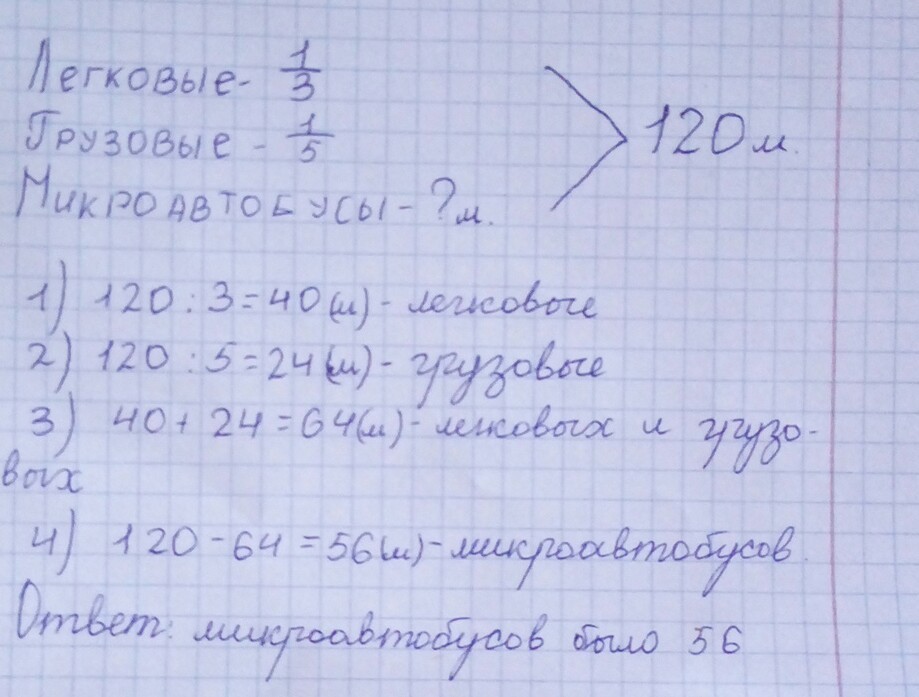 Легковые - 1/3
Грузовые - 1/5
Микроавтобусы - ? м.
120 м.
1) 120 : 3 = 40 (м) - легковые
2) 120 : 5 = 24 (м) - грузовые
3) 40 + 24 = 64 (м) - легковых и грузо-
вых
4) 120 - 64 = 56 (м) - микроавтобусов.
Ответ: микроавтобусов было 56